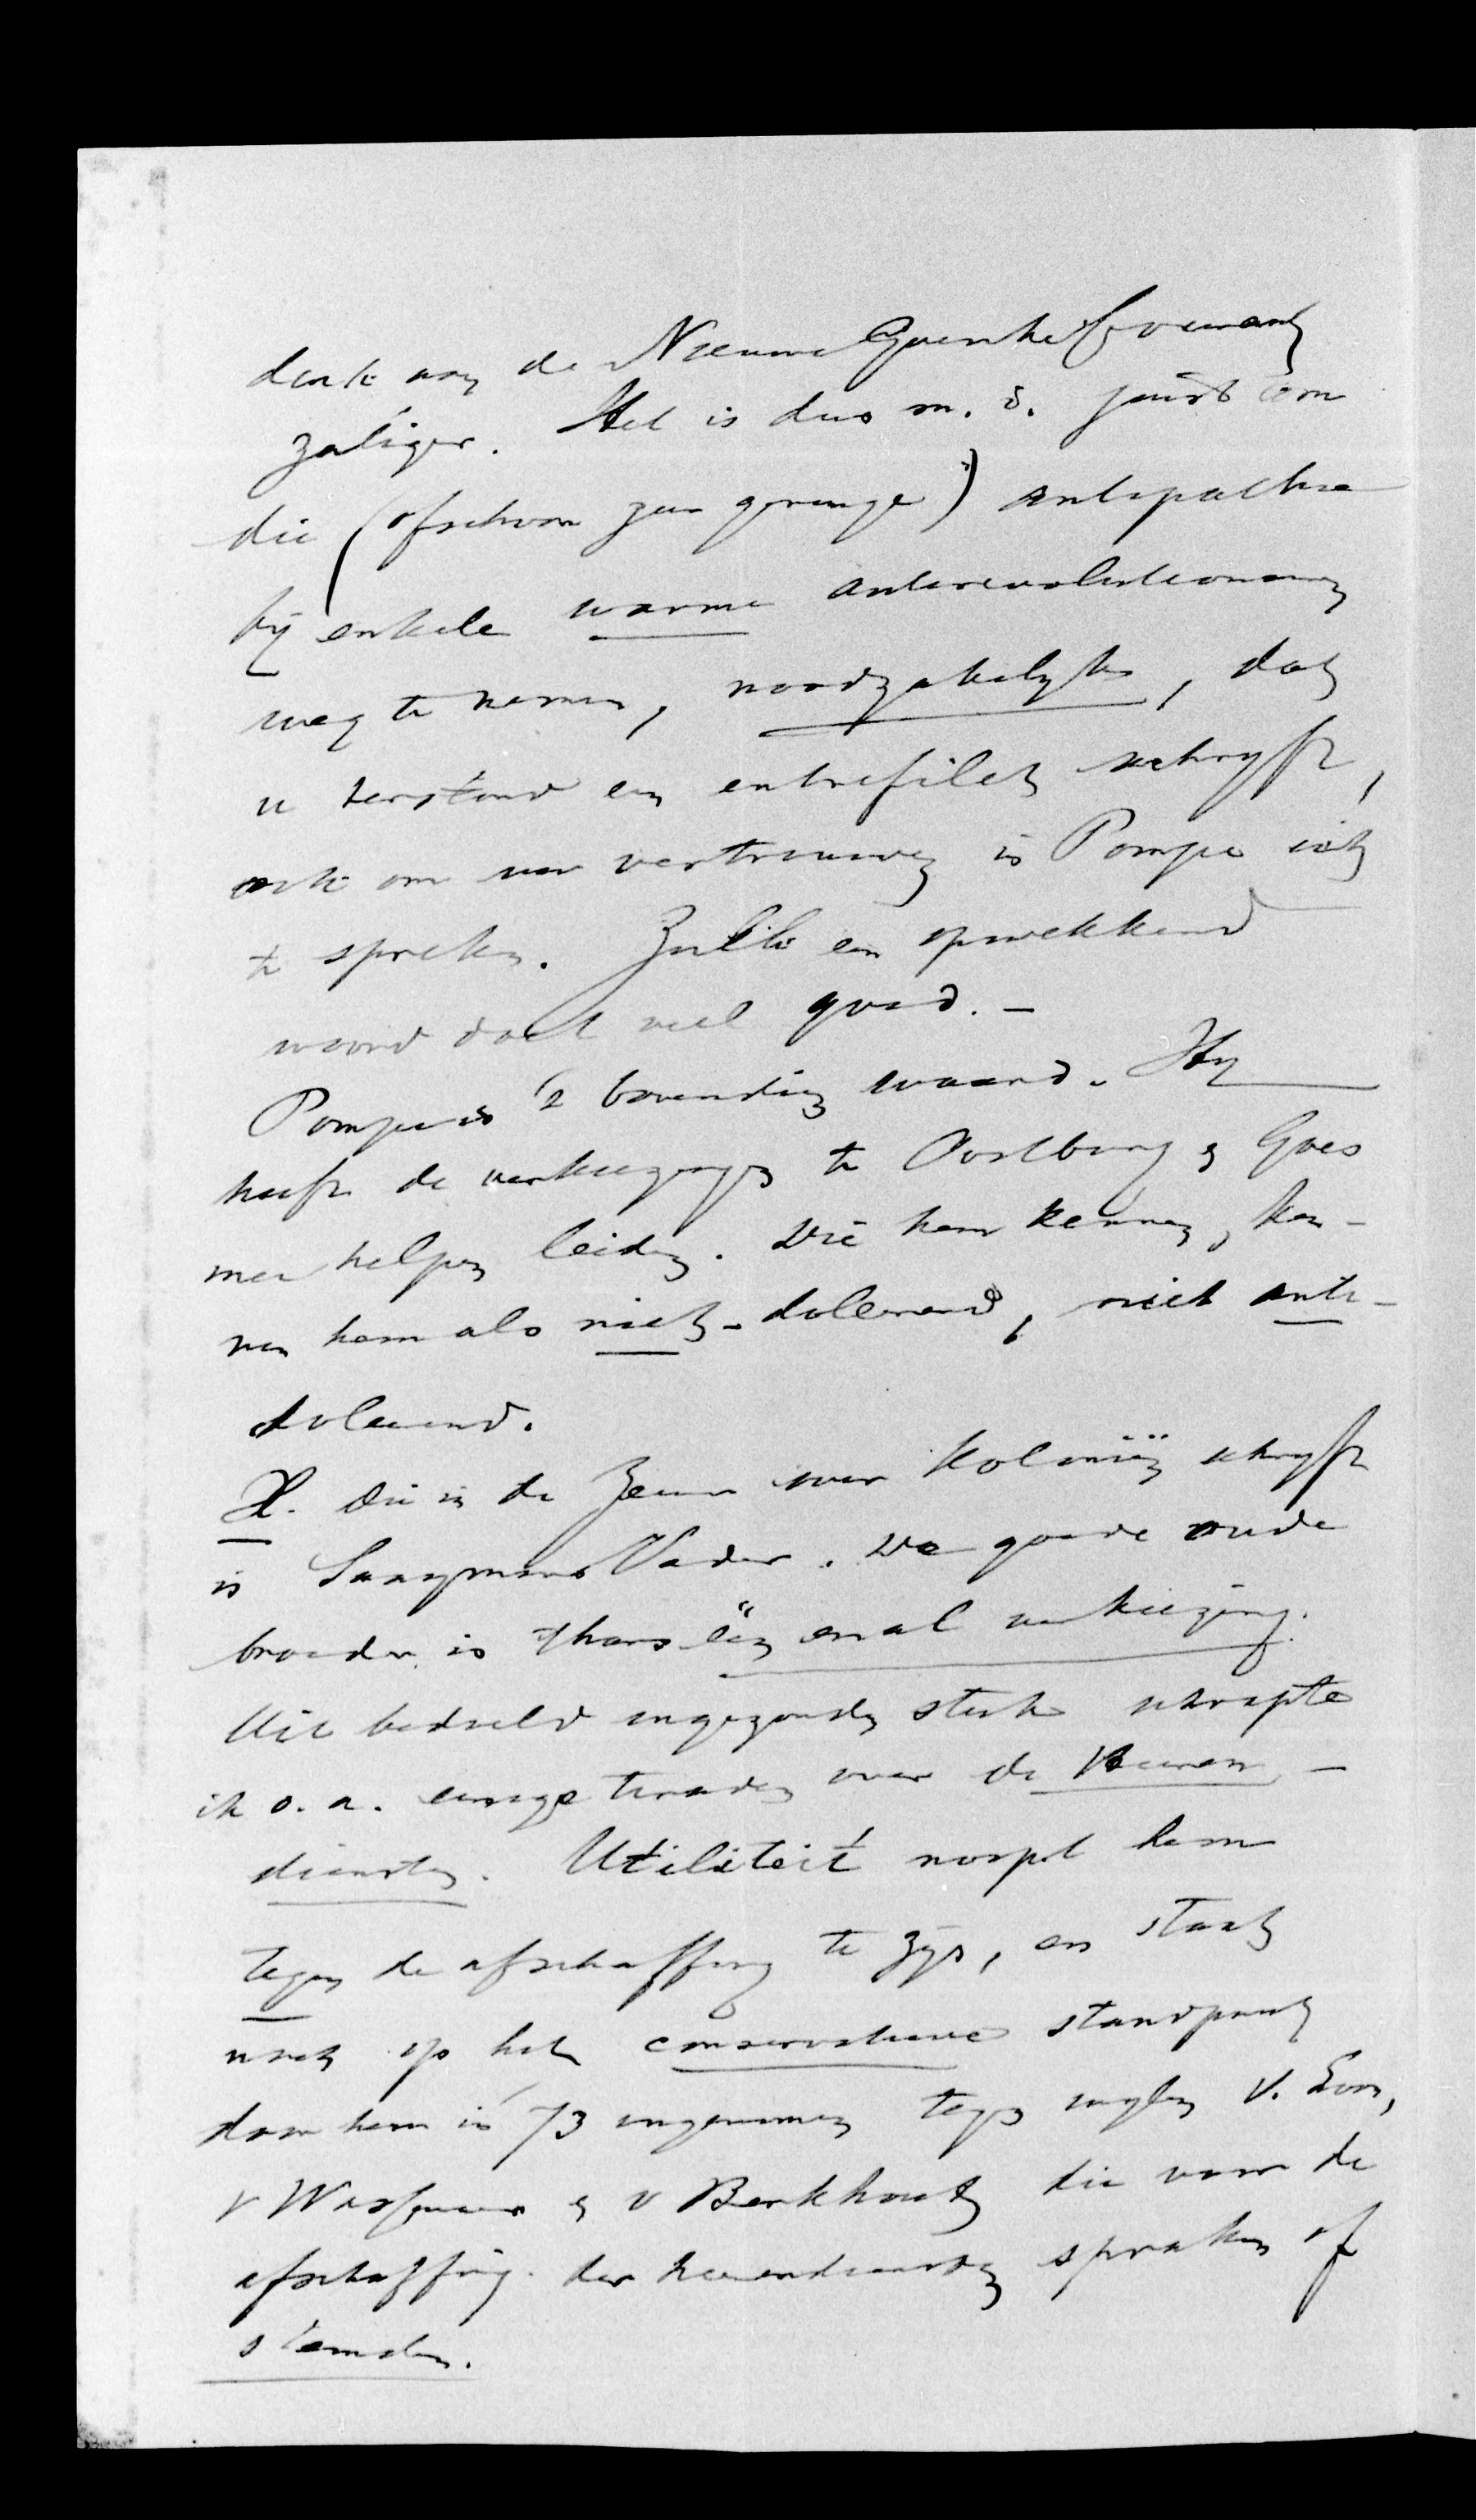 denk aan de Nieuwe Goessche Courant
zaliger. Het is dus m. i. juist om
die (ofschoon zeer geringe) antipathie
bij enkele warme antirevolutionairen
weg te nemen, noodzakelijk, dat
u terstond een entrefilet schrijft,
ook om uw vertrouwen in Pompe uit
te spreken. Zulk een opwekkend
woord doet veel goed. —
Pompe is 't bovendien waard. Hij
heeft de verkiezingen te Oostburg en Goes
mee helpen leiden. Die hem kennen, ken-
nen hem als niet-dolerend, niet anti-
dolerend.
X. die in de Zeeuw over Koloniën schrijft
is Saaymans Vader. De goede oude
broeder is thans één en al verkiezing.
Uit bedoeld ingezonden stuk schrapte
ik o. a. eenige tiraden over de Heeren-
diensten. Utiliteit noopt hem
tegen de afschaffing te zijn, en staat
nog op het conservatieve standpunt
door hem in 73 ingenomen tegen v. Loon,
v Wassenaer en v Berkhout die voor de
afschaffing der heerendiensten spraken of
stemden.